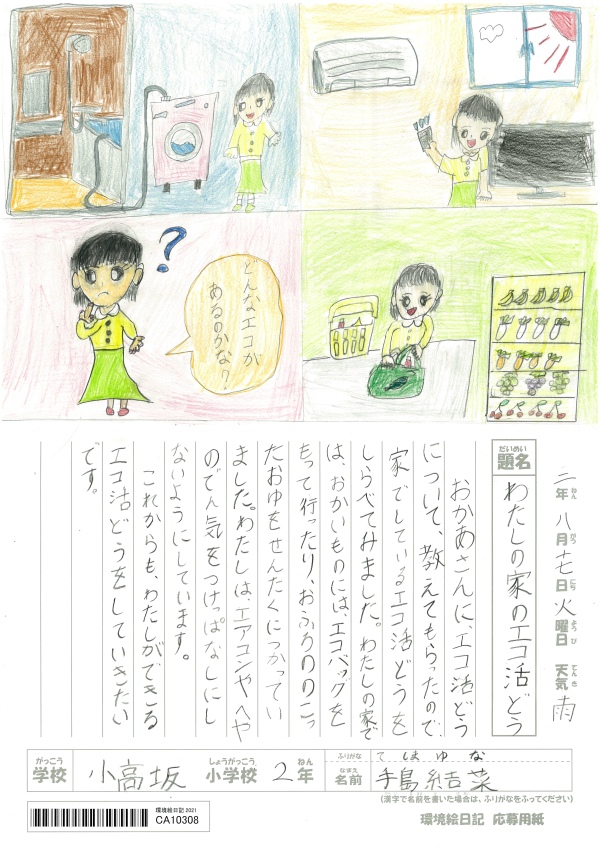 ?
どんなエコが
あるのかな?
二年 八月 十七日 火曜日 天気 雨
ねん がつ にち ようび てんき
だいめい
題名 わたしの家のエコ活どう
おかあさんに、エコ活どう
について、教えてもらったので、
家でしているエコ活どうを
しらべてみました。わたしの家で
は、おかいものには、エコバッグを
もって行ったり、おふろののこっ
たおゆをせんたくにつかってい
ました。わたしは、エアコンやへや
のでん気をつけっぱなしにし
ないようにしています。
これからも、わたしができる
エコ活どうをしていきたい
です。
がっこう しょうがっこう ねん ふりがな てしま ゆな
学校 小高坂 小学校 2年 なまえ 名前 手島 結菜
(漢字で名前を書いた場合は、ふりがなをふってください)
環境絵日記 2021
CA10308
環境絵日記 応募用紙